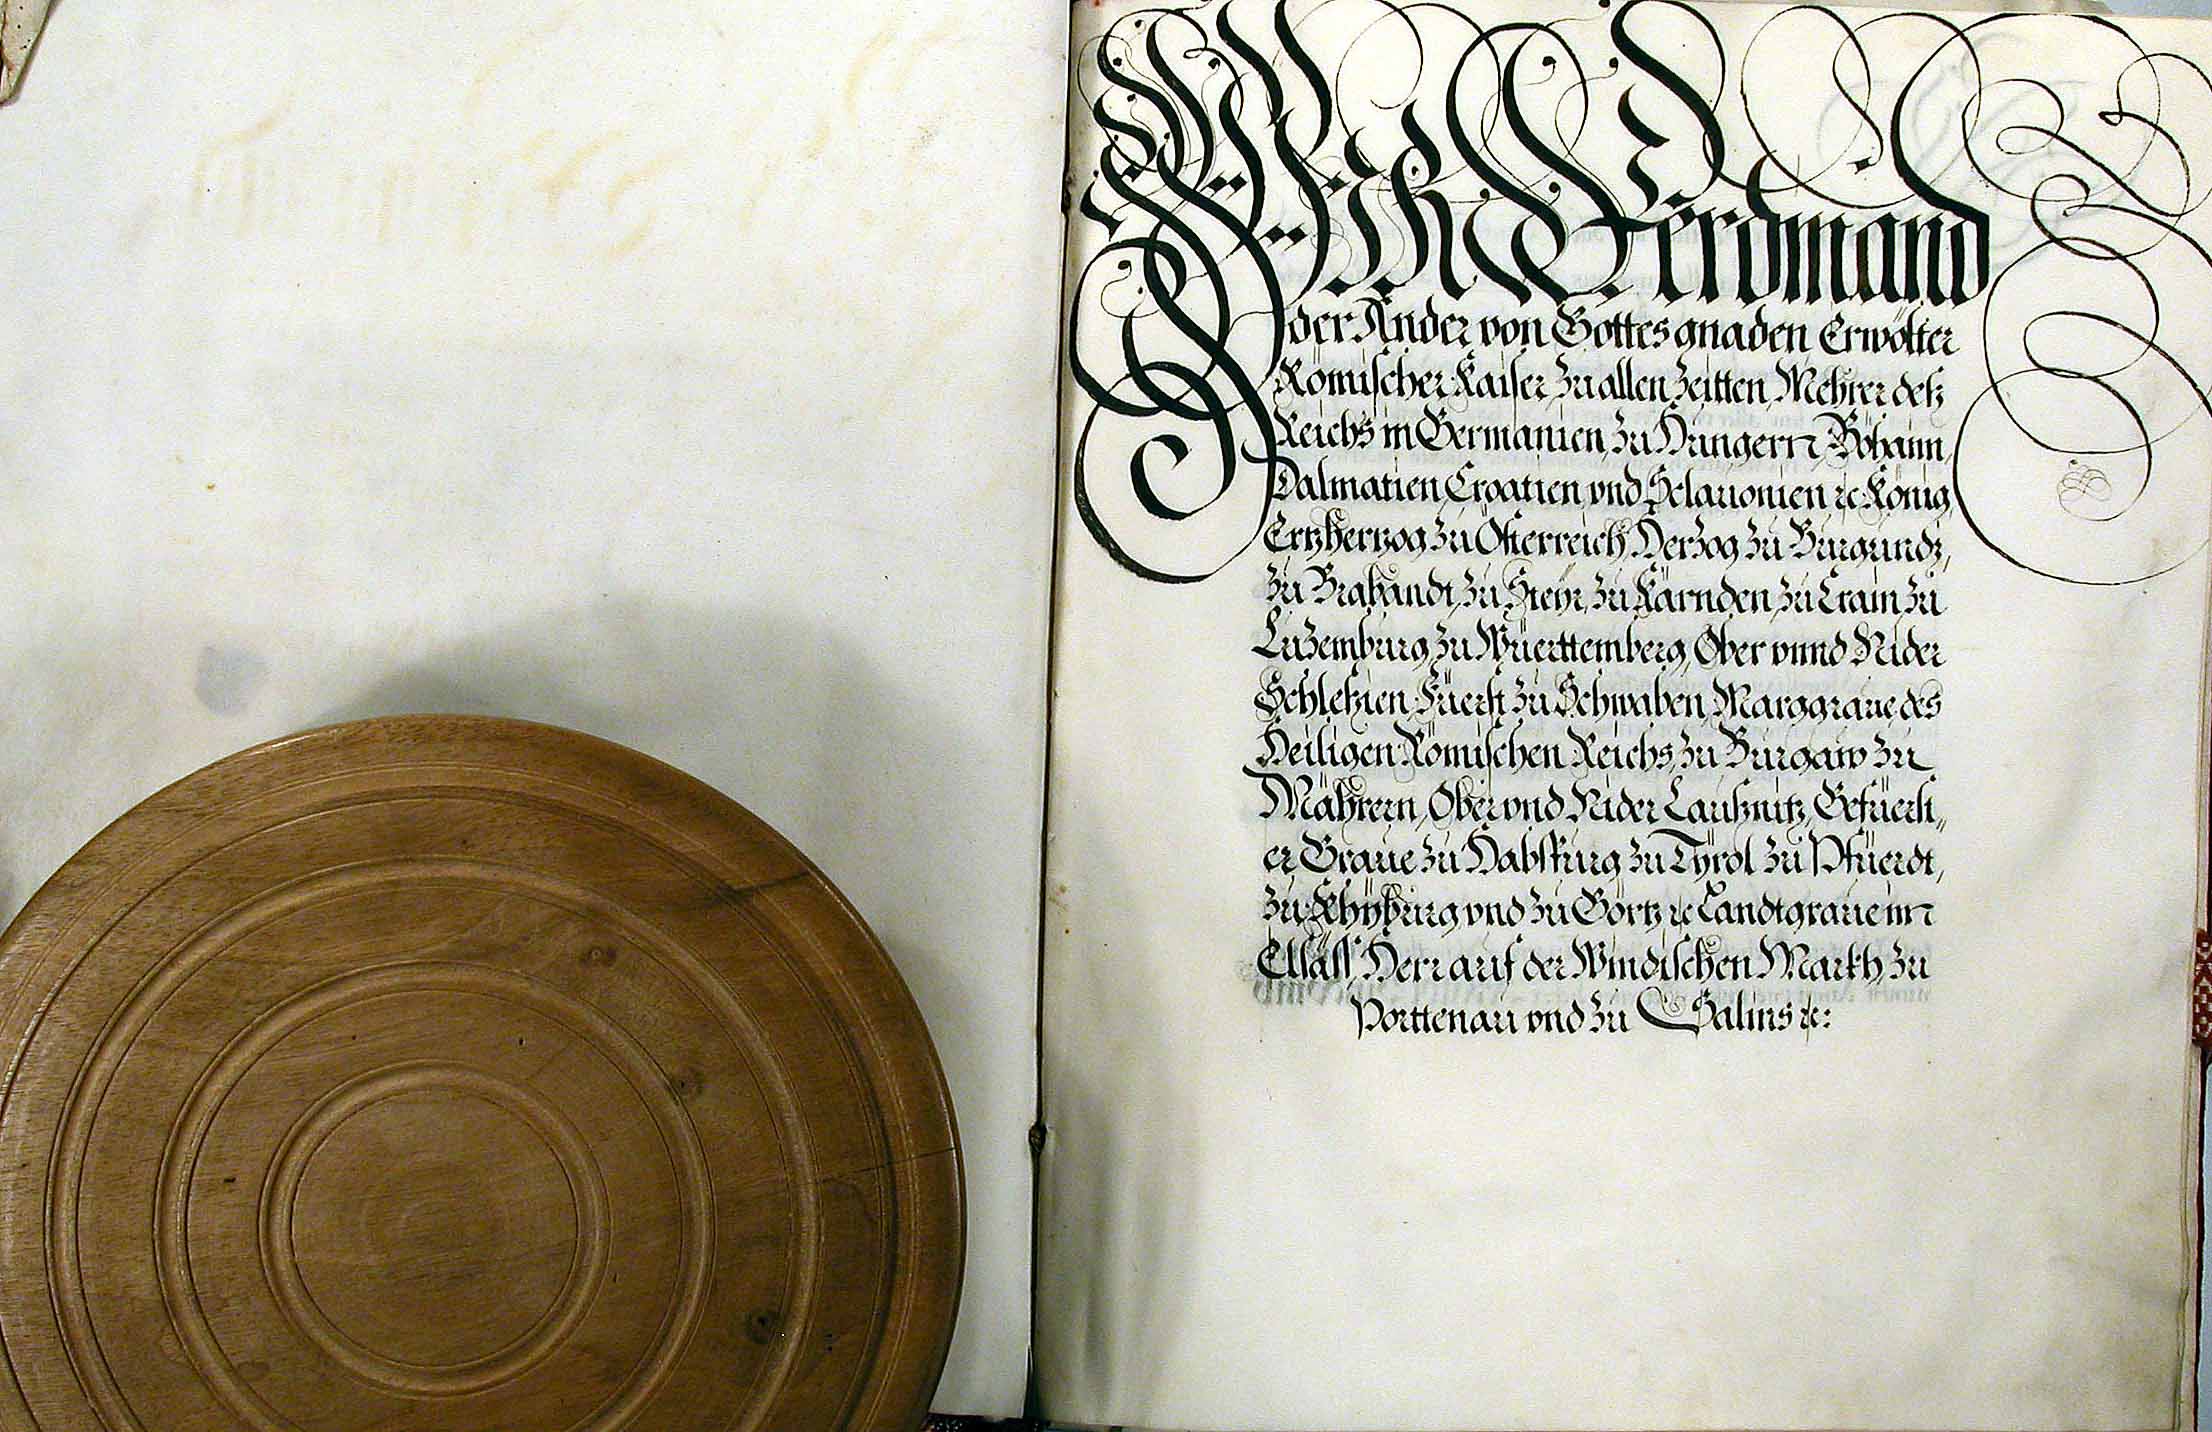 WIR Ferdinand
der Ander von Gottes gnaden Erwölter
Römischer Kaiser, zu allen Zeitten, Mehrer deß
Reichs in Germanien, zu Hungern, Böhaim,
Dalmatien, Croatien vnd Sclauonien ꝛc König,
Ertzhertzog zu Österreich, Herzog zu Burgundj,
zu Brabandt, zu Steyr, zu Kärnden, zu Crain, zu
Luzemburg, zu Wüerttemberg, Ober vnnd Nider
Schleßien, Füerst zu Schwaben, Marggraue des
Heiligen Römischen Reichs, zu Burgaw, zu
Mährern, Ober vnd Nider Laußnitz, Gefüerst„
er Graue zu Habspurg, zu Tyrol, zu Pfüerdt,
zu Khyburg vnd zu Görtz ꝛc Landtgraue inn
Elsäss, Herr auf der Windischen Markh, zu
Porttenau vnd zu Salins ꝛc: